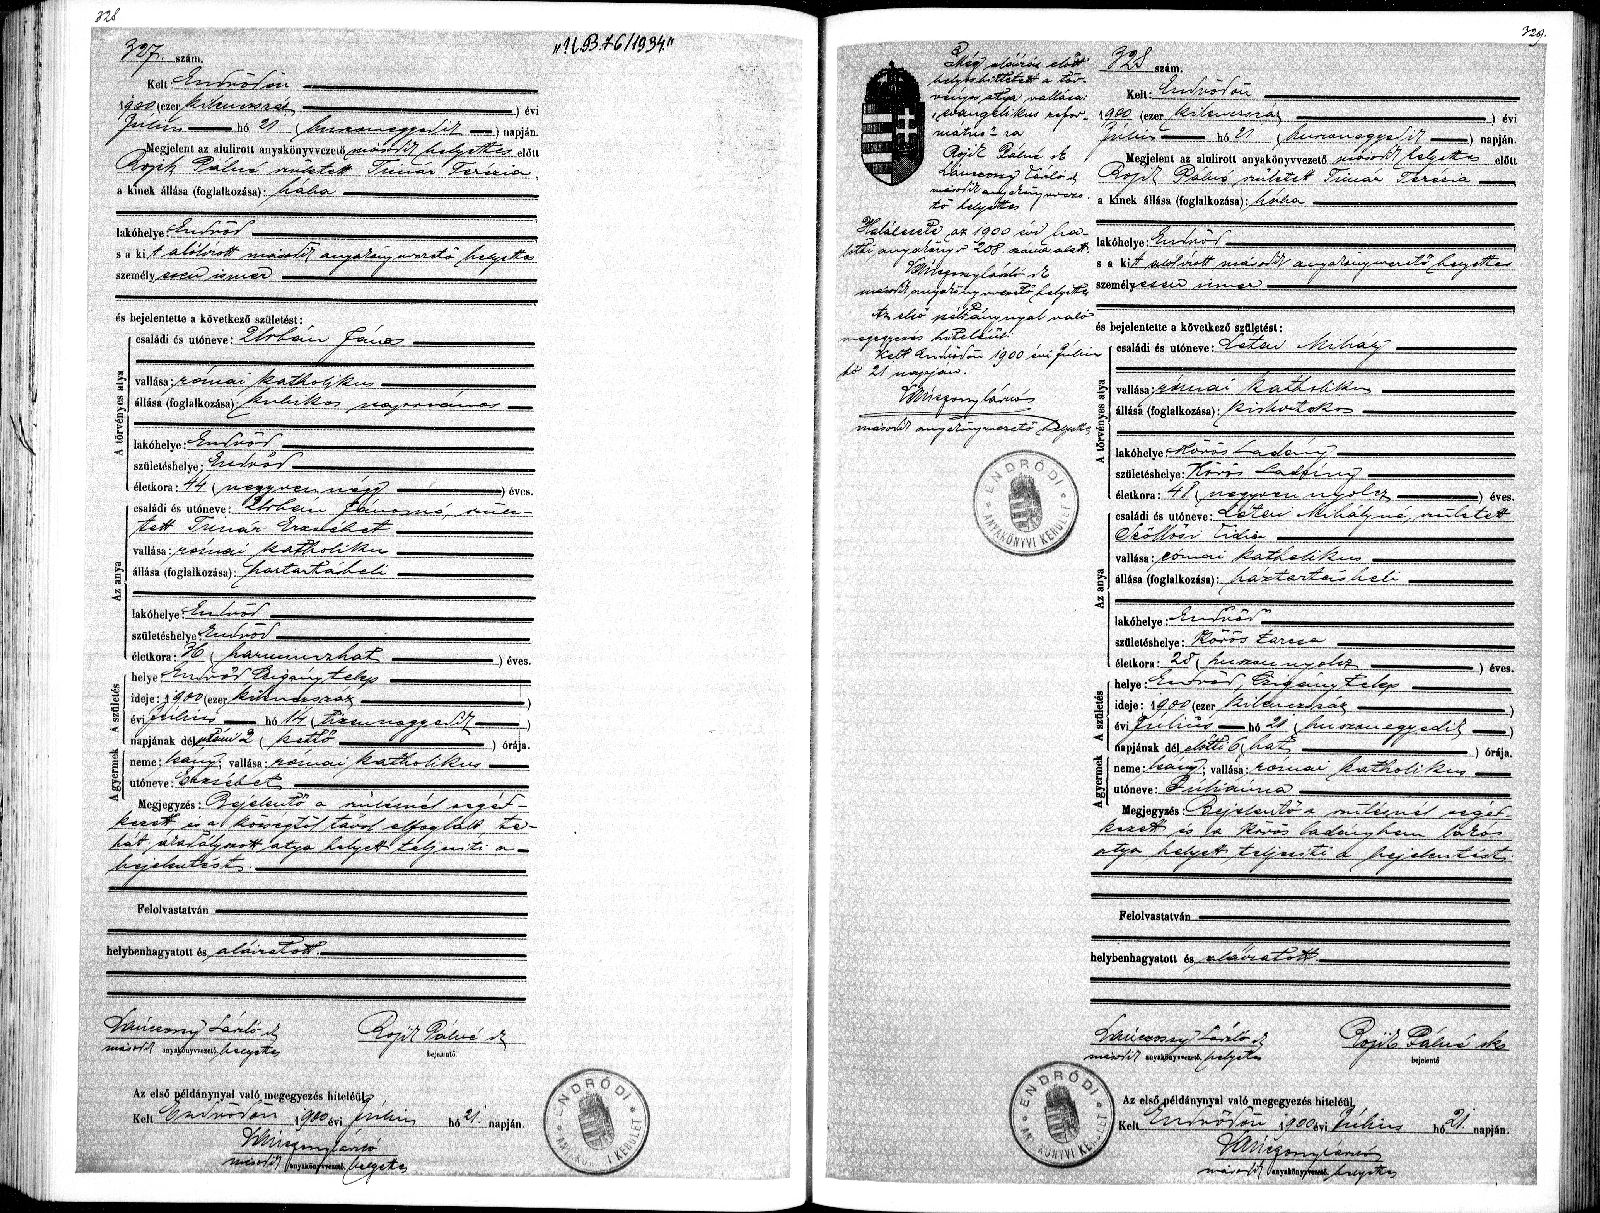 328
327. szám.
"U.B.76/1934."
Kelt Endrődön
1900 (ezer kilencszáz ) évi
Július hó 21 (huszonegyedik ) napján.
Megjelent az alulirott anyakönyvvezető másodk helyettes előtt
Rojik Pálné született Timár Terézia,
a kinek állása (foglalkozása): bába
lakóhelye: Endrőd
s a kit alólirott másodk anyakönyvvezető helyettes
személyesen ismer
és bejelentette a következő születést:
A törvényes atya
családi és utóneve: Urbán János
vallása: római katholikus
állása (foglalkozása): kubikos napszámos
lakóhelye: Endrőd
születéshelye: Endrőd
életkora: 44 (negyvennégy ) éves.
Az anya
családi és utóneve: Urbán Jánosné, szüle-
tett Timár Erzsébet
vallása: római katholikus
állása (foglalkozása): háztartásbeli
lakóhelye: Endrőd
születéshelye: Endrőd
életkora: 36 (harminczhat ) éves.
A születés
helye: Endrőd Czigánytelep
ideje: 1900 (ezer kilenczszáz )
évi Július hó 14 (tizennegyedik )
napjának délutáni 2 (kettő ) órája.
A gyermek
neme: leány; vallása: római katholikus
utóneve: Erzsébet
Megjegyzés: Bejelentő a szülésnél segéd-
kezett és a községtől távol elfoglalt, te-
hát akadályozott atya helyett teljesíti a
bejelentést.
Felolvastatván
helybenhagyatott és aláiratott.
Lániczony László sk Rojik Pálné sk
másodk anyakönyvvezető helyettes bejelentő
Az első példánynyal való megegyezés hiteléül,
Kelt Endrődön 1900 évi Július hó 21. napján.
másodk anyakönyvvezető helyettes
ENDRŐDI ANYAKÖNYVI KERÜLET
329.
328 szám.
Még aláirás előtt
helyesbittetett a tör-
vényes atya vallása:
"evangelikus refor-
mátus"-ra
Rojik Pálné sk
László sk
másodk anyakönyvveze-
tő helyettes
Halálesete az 1900 évi ha-
lotti anyakönyv 208 száma alatt.
másodk anyakönyvvezető helyettes
Az első példánynyal való
megegyezés hiteléül.
Kelt Endrődön 1900 évi Július
hó 21 napján.
másodk anyakönyvvezető helyettes
ENDRŐDI ANYAKÖNYVI KERÜLET
Kelt: Endrődön
1900 (ezer kilenczszáz ) évi
Július hó 21 (huszonegyedik ) napján.
Megjelent az alulirott anyakönyvvezető másodk helyettes előtt
Rojik Pálné, született Timár Terézia
a kinek állása (foglalkozása): bába
lakóhelye: Endrőd
s a kit alólirott másodk anyakönyvvezető helyettes
személyesen ismer
és bejelentette a következő születést:
A törvényes atya
családi és utóneve: Mihály
vallása: római katholikus
állása (foglalkozása): kisbirtokos
lakóhelye: Körös Ladány
születéshelye: Körös Ladány
életkora: 48 (negyvennyolcz ) éves.
Az anya
családi és utóneve: Mihályné, született
Szöllősi Lidia
vallása: római katholikus
állása (foglalkozása): háztartásbeli
lakóhelye: Endrőd
születéshelye: Körös Tarcsa
életkora: 28 (huszonnyolcz ) éves.
A születés
helye: Endrőd Czigánytelep
ideje: 1900 (ezer kilenczszáz )
évi Július hó 21 (huszonegyedik )
napjának délelőtti 6 (hat ) órája.
A gyermek
neme: leány; vallása: római katholikus
utóneve: Juliánna
Megjegyzés: Bejelentő a szülésnél segéd-
kezett és a Körös ladányban lakós
atya helyett teljesíti a bejelentést.
Felolvastatván
helybenhagyatott és aláiratott.
Lániczony László sk Rojik Pálné sk
másodk anyakönyvvezető helyettes bejelentő
Az első példánynyal való megegyezés hiteléül,
Kelt Endrődön 1900 évi Július hó 21. napján.
másodk anyakönyvvezető helyettes
ENDRŐDI ANYAKÖNYVI KERÜLET